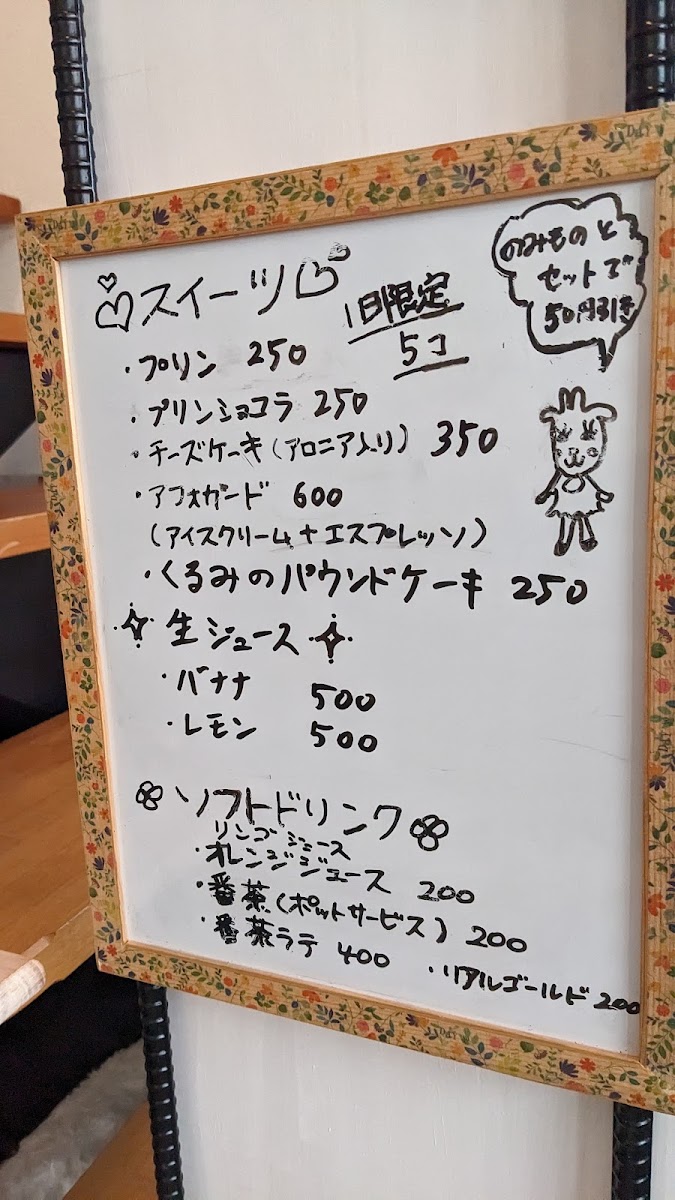 のみものと
セットで
50円引き
スイーツ
1日限定
5コ
・プリン 250
・プリンショコラ 250
・チーズケーキ(アロニア入り) 350
・アフォガード 600
(アイスクリーム+エスプレッソ)
・くるみのパウンドケーキ 250
生ジュース
・バナナ 500
・レモン 500
ソフトドリンク
リンゴジュース
・オレンジジュース 200
・番茶(ポットサービス) 200
・番茶ラテ 400
・リアルゴールド 200